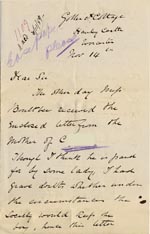 Hanley Castle
Worcester
Nov 14th
Dear Sir
The other day Miss
Boulton received the
Enclosed letter from the
Mother of C
Though I think he is paid
for by some lady, I had
Grave doubts whether under
the circumstances the
Society would keep the
boy, hence this letter